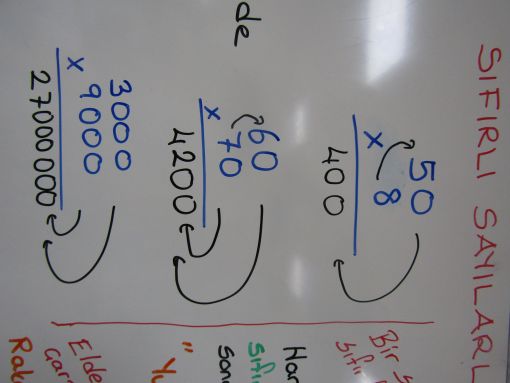 SIFIRLI SAYILARL
50
x 8
400
60
x 70
4200
3000
x 9000
27000000
de
Bir
Sıfır
Har
Sıfı
Sone
"Yu
Elde
Rak